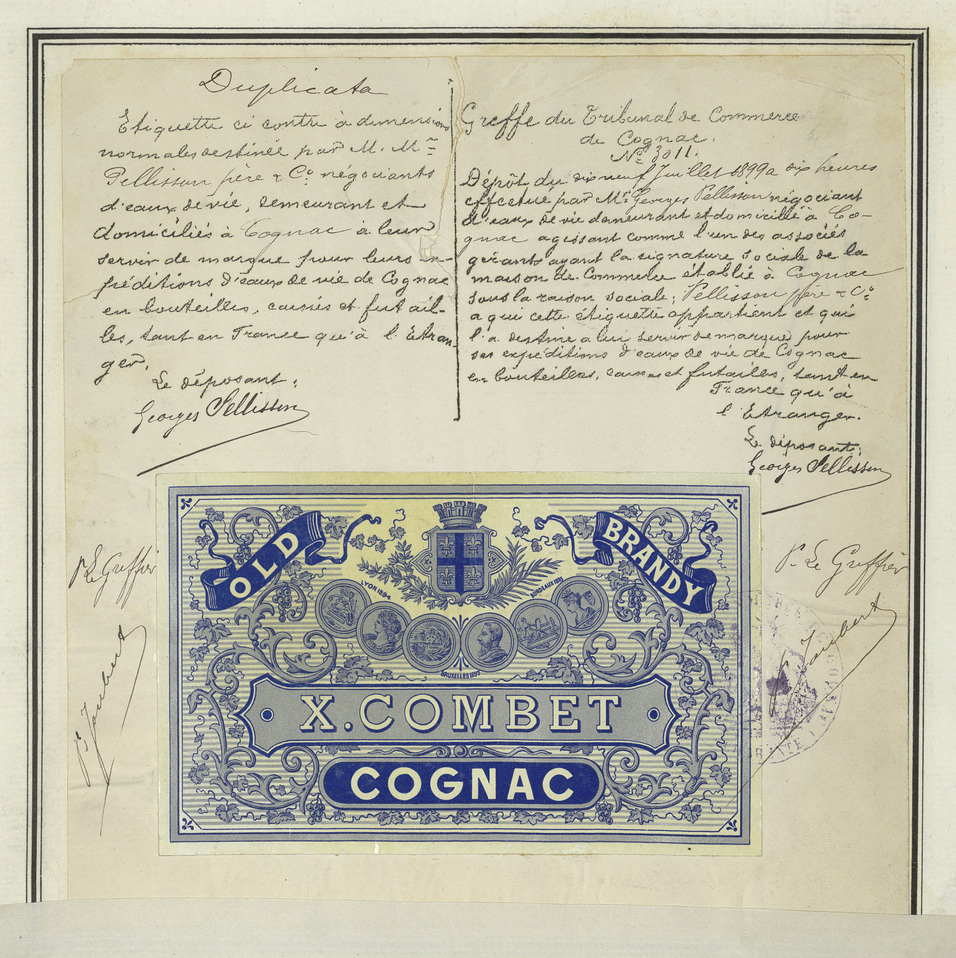 Duplicata
Etiquette ci contre à dimensions
normales destinée par M. M.rs
Pellisson père & Co. négociants
d'eaux de vie, demeurant et
domiciliés à Cognac a leur
servir de marque pour leurs ex-
péditions d'eaux de vie de Cognac
en bouteilles, caisses et futail-
les, tant en France qu'à l'Etran
ger.
Le déposant:
Georges Pellisson
Greffe du Tribunal de Commerce
de Cognac.
No. 3011.
Dépôt du dix neuf Juillet 1899 a dix heures
effectué par Mr. Georges Pellisson négociant
d'eaux de vie demeurant et domicilié à Co-
gnac agissant comme l'un des associés
gérants ayant la signature sociale de la
maison de Commerce établie à Cognac
sous la raison sociale; Pellisson père & Co.
a qui cette étiquette appartient et qui
l'a destine a leur servir de marque pour
ses expéditions d'eaux de vie de Cognac
en bouteilles, caisses et futailles, tant en
France qu'à
l'Etranger.
Le déposant;
Georges Pellisson
Pr Le Greffier
Jaubert
Pr Le Greffier
Jaubert
OLD BRANDY
LYON 1894 BORDEAUX
BRUXELLES
X. COMBET
COGNAC